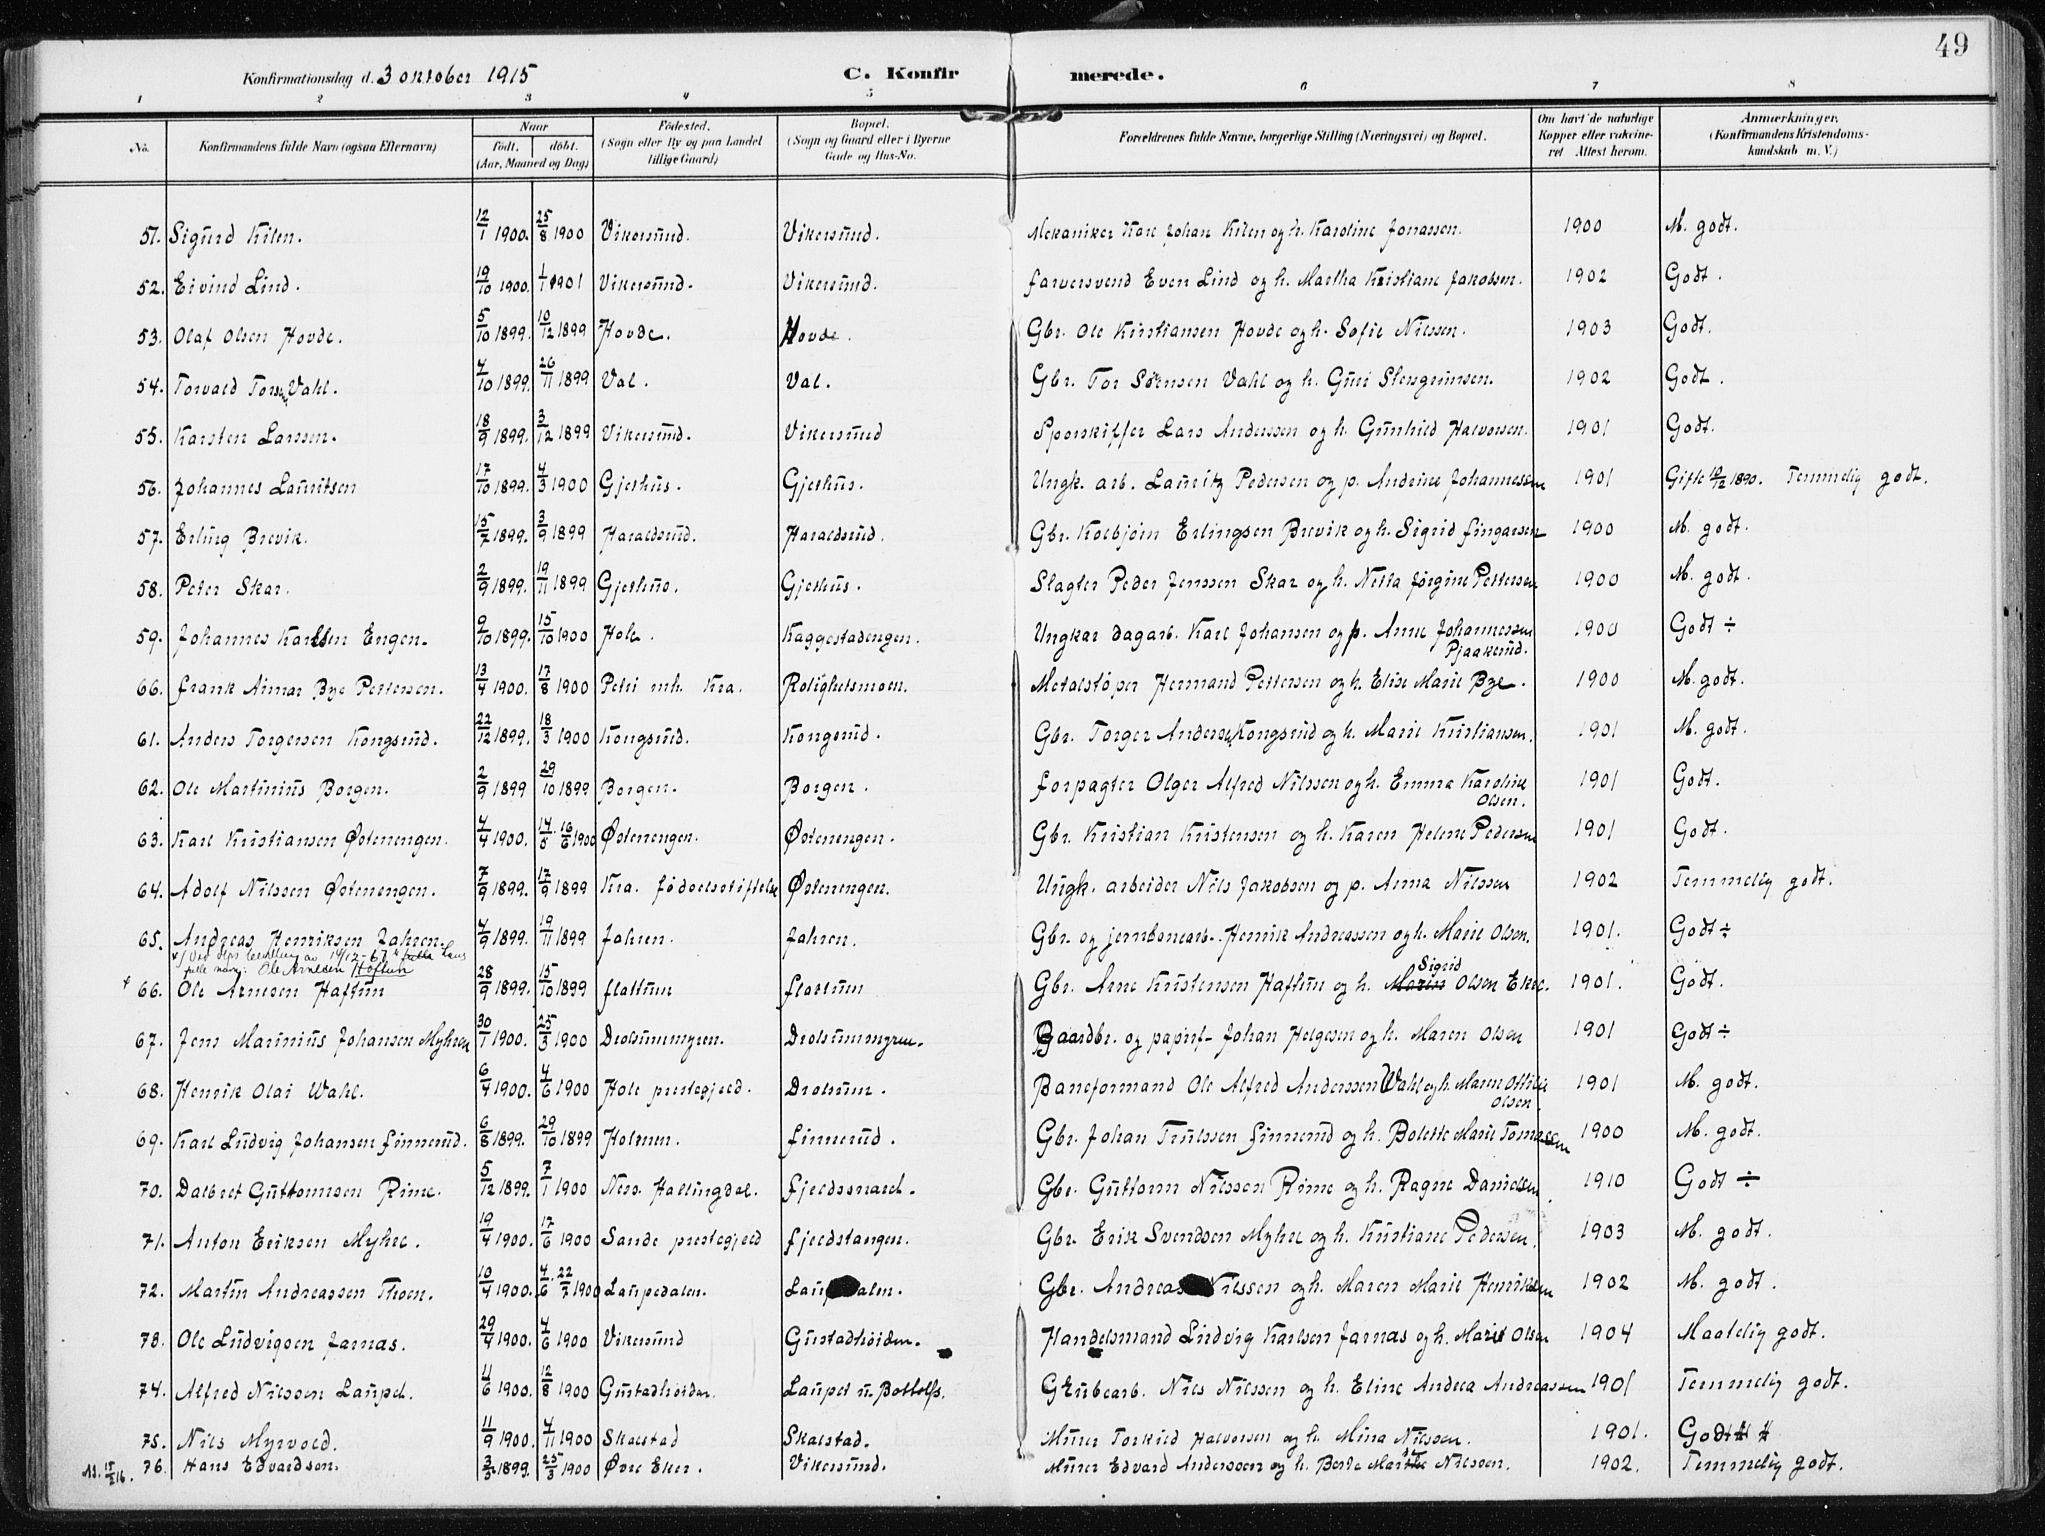 49
Konfirmationsdag d. 3 oktober 1915 C. Konfirmerede.
1 2 3 4 5 6 7 8
No. Konfirmandens fulde Navn (ogsaa Efternavn) Naar født. døbt. (Aar, Maaned og Dag) Fødested. (Sogn eller By og paa Landet tillige Gaard) Bopæl. (Sogn og Gaard eller i Byerne Gade og Hus-No. Forældrenes fulde Navne, borgerlige Stilling (Næringsvei) og Bopæl. Om havt de naturlige Kopper eller vakcineret Attest herom. Anmærkninger. (Konfirmandens Kristendomskundskab m. V.)
51. Sigurd Kilen. 12/1 1900. 25/8 1900 Vikersund. Vikersund. Mekaniker Karl Johan Kilen og h. Karoline Jonassen. 1900 M. godt.
52. Eivind Lind. 19/10 1900. 1/1 1901 Vikersund. Vikersund. Farversvend Even Lind og h. Martha Kristiane Jakobsen. 1902 Godt.
53. Olaf Olsen Hovde. 5/10 1899. 10/12 1899 Hovde. Hovde. Gbr. Ole Kristiansen Hovde og h. Sofie Nilssen. 1903 Godt.
54. Torvald Torsen Vahl. 4/10 1899. 26/11 1899 Val. Val. Gbr. Tor Sørensen Vahl og h. Guri Stengrimsen. 1902 Godt.
55. Karsten Larssen. 18/9 1899. 3/12 1899 Vikersund. Vikersund Sporskifter Lars Anderssen og h. Gunhild Halvorsen. 1901 Godt.
56. Johannes Lauritsen 17/10 1899. 4/3 1900 Gjethus. Gjethus. Ungk. arb. Lauritz Pedersen og p. Andrine Johannessen 1901 Gifte 1890. Temmelig godt.
57. Erling Brevik. 15/7 1899. 3/9 1899 Haraldsrud. Haraldsrud. Gbr. Kolbjørn Erlingsen Brevik og h. Sigrid Fingarsen 1900 M. godt.
58. Peter Skar. 2/9 1899. 19/11 1899 Gjethus. Gjethus. Slagter Peder Jenssen Skar og h. Netta Jørgine Pettersen 1900 M. godt.
59. Johannes Karlsen Engen. 9/10 1899. 15/10 1900 Hole. Kaggestadengen. Ungkar dagarb. Karl Johansen og p. Anne Johannessen Pjaakerud. 1900 Godt ÷
66. Frank Aimar Bye Pettersen. 13/4 1900. 17/8 1900 Petri mh. Kra. Rolighetsmoen. Metalstøper Hermand Pettersen og h. Elise Marie Bye. 1900 M. godt.
61. Anders Torgersen Kongsrud. 22/12 1899. 18/3 1900 Kongsrud. Kongsrud. Gbr. Torger Andersen Kongsrud og h. Marie Kristiansen. 1901 M. godt.
62. Ole Martinius Borgen. 2/9 1899 29/10 1899 Borgen. Borgen. Forpagter Olger Alfred Nilssen og h. Emma Karoline Olsen. 1901 Godt.
63. Karl Kristiansen Østenengen. 4/4 1900. 14/5 16/6 1900 Østenengen. Østenengen. Gbr. Kristian Kristensen og h. Karen Helene Pedersen 1901 Godt.
64. Adolf Nilssen Østenengen. 7/9 1899. 17/9 1899 Kra. Fødselsstiftelse Østenengen. Ungk. arbeider Nils Jakobsen og p. Anna Nilssen 1902 Temmelig godt.
65. Andreas Henriksen Jahren. 4/9 1899. 19/11 1899 Jahren. Jahren. Gbr. og jernbanearb. Henrik Andreassen og h. Marie Olsen. 1901. Godt ÷
x/ Ved av 19/12-67 hans
fulle navn: Ole Arnesen Høftun
x 66. Ole Arnesen Haftun 28/9 1899. 15/10 1899 Flattum Flattum Gbr. Arne Kristensen Haftun og h. Maren Sigrid Olsen Ekre. 1901. Godt.
67. Jens Marinius Johansen Myhren 30/1 1900. 25/3 1900 Drolsummyren. Drolsummyren. Gaardbr. og papirf- Johan Helgesen og h. Maren Olsen 1901 Godt ÷
68. Henrik Olai Wahl. 6/4 1900. 4/6 1900 Hole prestegjeld. Drolsum. Baneformand Ole Alfred Anderssen Wahl og h. Maren Ottilie Olsen. 1901 M. godt.
69. Karl Ludvig Johansen Finnerud. 6/8 1899. 29/10 1899 Holmen. Finnerud. Gbr. Johan Trulssen Finnerud og h. Bolette Marie Tomassen 1900 M. godt.
70. Dalbret Guttormsen Rime. 5/12 1899. 7/1 1900 Ness. Hallingdal. Fjeldsnaret. Gbr. Guttorm Nilssen Rime og h. Ragne Danielsen 1910 Godt ÷
71. Anton Eriksen Myhre. 19/4 1900. 17/6 1900 Sande prestegjeld Fjeldstangen. Gbr. Erik Svendsen Myhre og h. Kristiane Pedersen. 1903 M. godt.
72. Martin Andreassen Thoen. 10/4 1900. 4/6 22/7 1900 Laupedalen. Laupedalen. Gbr. Andreas Nilssen og h. Maren Marie Henriksen 1902 M. godt.
73. Ole Ludvigsen Jarnas. 29/4 1900. 4/6 1900 Vikersund Gustadhøiden. Handelsmand Ludvig Karlsen Jarnas og h. Marie Olsen 1904 Maatelig godt.
74. Alfred Nilssen Laupet. 11/6 1900. 12/8 1900 Gustadhøiden. Laupet u. Bottolfs. Grubearb. Nils Nilssen og h. Eline Andrea Andreassen 1901 Temmelig godt.
75. Nils Myrvold. 11/9 1900. 4/11 1900 Skalstad Skalstad. Murer Torkild Halvorsen og h. Mina Nilssen. 1901. Godt
76. Hans Edvardsen. 3/3 1899. 25/3 1900 Øvre Eker. Vikersund. Murer Edvard Anderssen og h. Berte Marthe Nilssen. 1902. Temmelig godt.